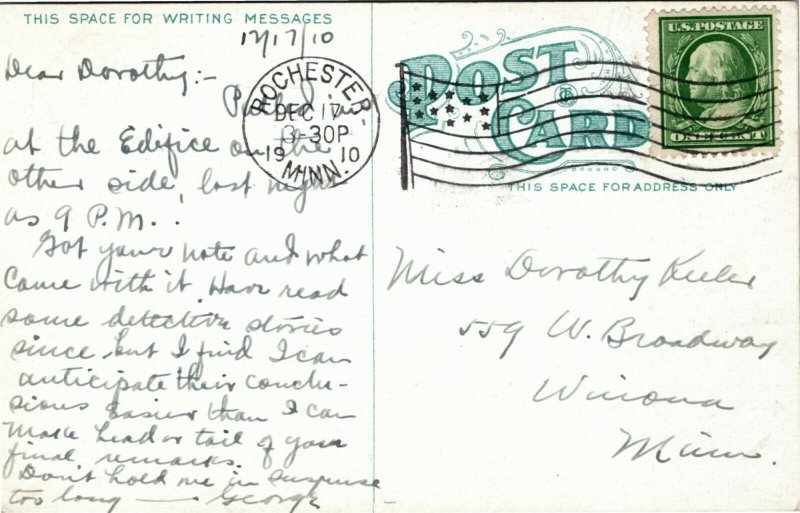 THIS SPACE FOR WRITING MESSAGES
12/17/10
Dear Dorothy:-
at the Edifice on the
other side, last night
as 9 P.M.
Got your note and what
came with it Have read
some detective stories
since, but I find I can
anticipate their conclu-
sions easier than I can
make head or tail of your
final remarks.
Don't hold me in suspense
too long — George
ROCHESTER.
DEC 17
3-30P
1910
MINN.
POST
CARD
U.S. POSTAGE
ONE CENT
THIS SPACE FOR ADDRESS ONLY
Miss Dorothy Keeler
559 W. Broadway
Winona
Minn.